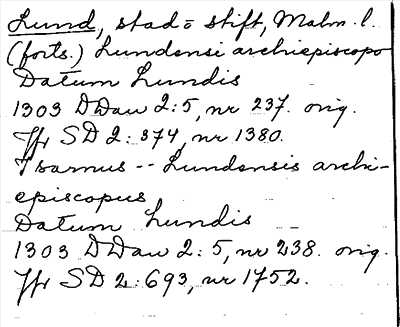 Lund, stad o stift, Malm. l.
(forts.) Lundensi archiepiscopo
Datum Lundis
1303 DDan 2:5, nr 237. orig.
Jfr SD 2: 374, nr 1380.
Isarnus -- Lundensis archi-
episcopus
Datum Lundis
1303 DDan 2: 5, nr 238. orig.
Jfr SD 2:693, nr 1752.